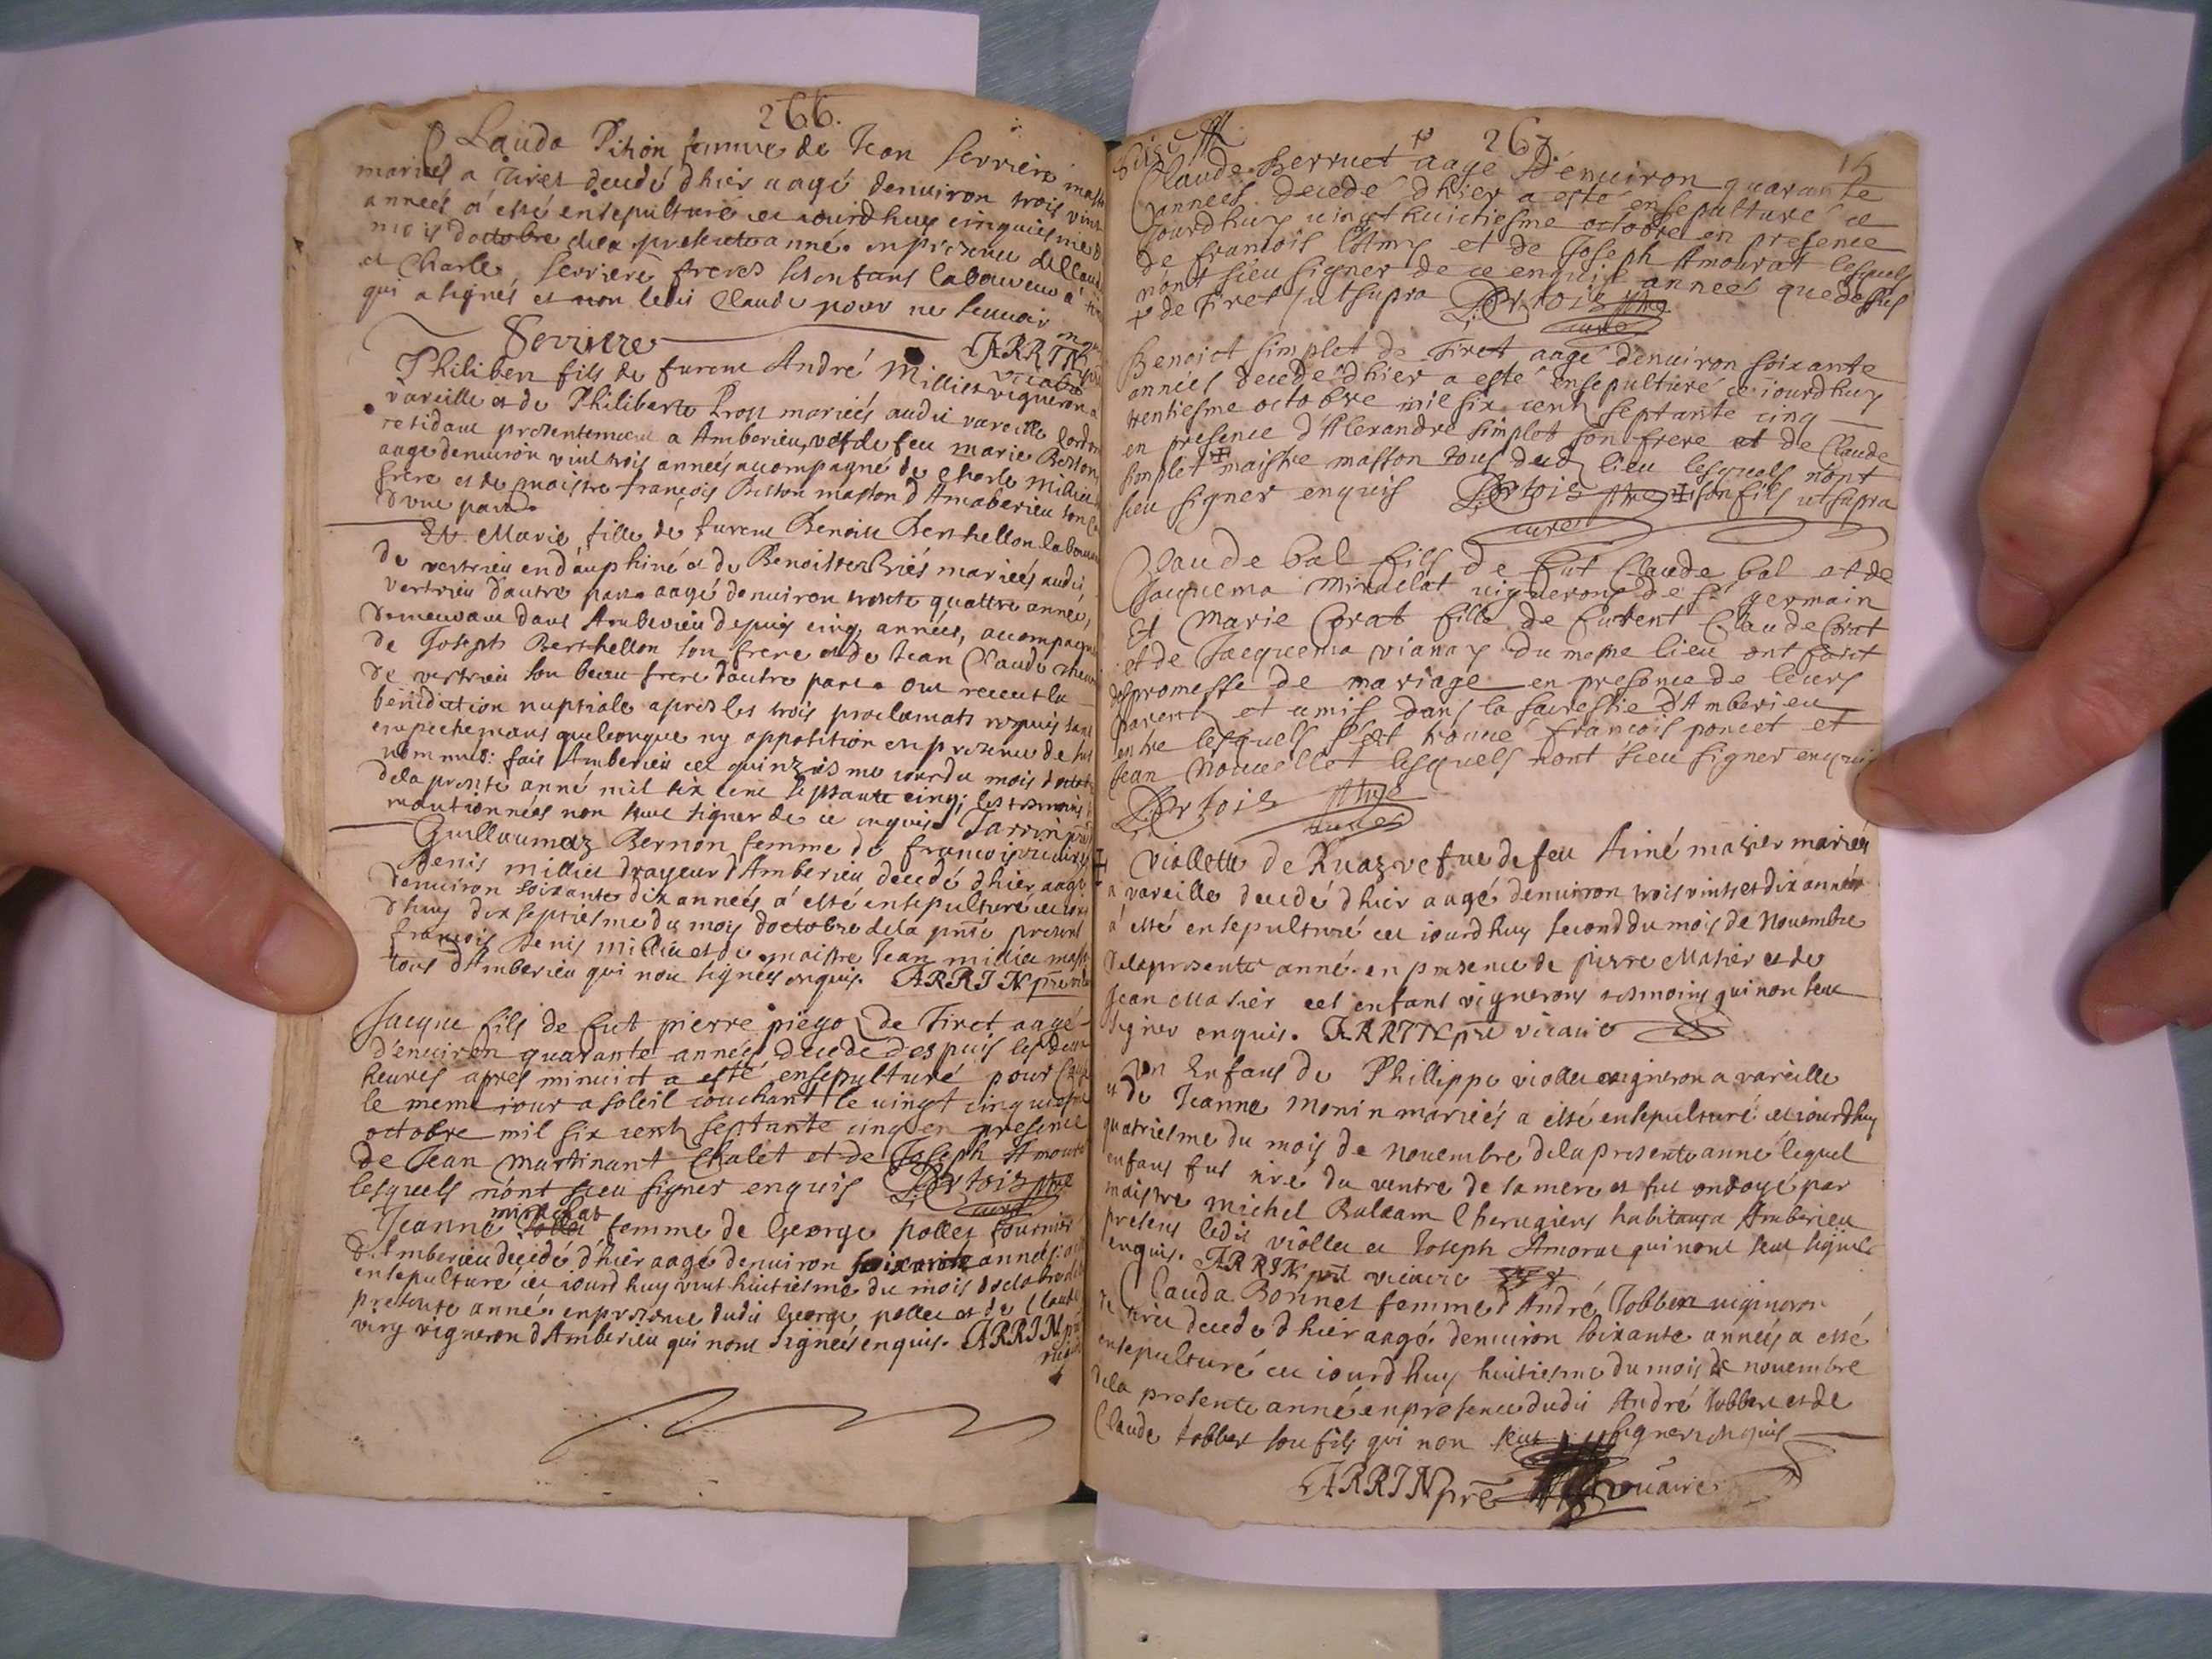 266.
Clauda Pithon femme de Jean Serriere
mariés a tiret decedé d'hier aagé denuiron trois vint
années a esté ensepulturé ce iourdhuy cinquiesme
mois doctobre dela presente anné. en presence de Claude
et Charle Serriere freres ses enfans laboureurs a
qui a signés et non ledit Claude pour ne scauoir
Serriere JARRIN
vicaire
Philibert fils de furent André Millet vigneron a
vareille et de Philiberte mariés audit vareille
residant presentement a Amberieu, vefde feu marie
aage denuiron vint trois années acompagné de Charle Millet
frere et de maistre françois masson d'Amberieu son
d'vne part
Et Marie fille de furent Benoist Berthellon
de vertrieu en dauphiné et de Benoiste mariés audit
vertrieu d'autre part aagé denuiron trente quattre années,
demeurant dans Amberieu depuis cinq années, accompagné
de Joseph Berthellon son frere et de Jean Claude
de vertrieu son beau frere d'autre part ont receu la
benediction nuptiale apres les trois proclamats
empechemans quelconque ny opposition en presence de sus
nommés: fait Amberieu ce quinziesme iour du mois
dela presente anné mil six cent septante cinq; les tesmoins
mantionnées non sceu signer de ce enquis. Jarrin
vicaire
Guillaumaz Bernon femme de françois
Denis millet drayeur d'Amberieu decedé d'hier aagé
denuiron soixante dix années a esté ensepulturé ce iour
d'huy dix septiesme du mois d'octobre dela presente present
françois denis millet et de maistre Jean millet
tous d'Amberieu qui non signés enquis. JARRIN
Jacque fils de fut pierre piego de Tiret aagé
d'enuiron quarante années decedé despuis les deux
heures apres minuict a esté ensepulturé pour
le meme iour a soleil couchant le vingt cinquiesme
octobre mil six cent septante cinq en presence
de Jean Martinant Chalet et de Joseph Amourat
lesquels n'ont sceu signer enquis
curé
Jeanne femme de George pollet
d'Amberieu decedé d'hier aagé denuiron soixante années
ensepulturé ce iourd'huy vint huitiesme du mois
presente anné. en presence dudit George pollet et de Claude
very vigneron d'Amberieu qui nont signés enquis. JARRIN
267
15
Claude Berruet aagé d'enuiron quarante
années decedé d'hier a esté ensepulturé ce
iourdhuy vingthuictiesme octobre en presence
de francois et de Joseph Amourat lesquels
n'ont sceu signer de ce enquis année que dessus
de Tiret ut supra
curé
Benoict simplet de Tiret aagé denuiron soixante
années decedé d'hier a esté ensepulturé ce iourdhuy
trentiesme octobre mil six cent septante cinq
en presence d'Alexandre simplet son frere et de Claude
simplet maistre masson tous dud lieu lesquels n'ont
sceu signer enquis son fils ut supra
curé
Claude bal fils de fut Claude bal et de
Jacquema vignerons de St germain
Et Marie Corat fille de furent Claude Corat
et de Jacquema vianay du mesme lieu ont faict
promesse de mariage en presence de leurs
parents et amis dans la sacrestie d'Amberieu
entre lesquels s'est trouué francois poncet et
Jean Nouuellet lesquels nont sceu signer enquis
curé
Viollette de Ruaz vefue de feu Aimé masier mariés
a vareille decedé d'hier aagé denuiron trois vints et dix années
a esté ensepulturé ce iourdhuy second du mois de Nouembre
dela presente anné. en presence de pierre Masier et de
Jean Masier ces enfans vignerons tesmoins qui non sceu
signer enquis. JARRIN pre vicaire
Vn Enfans de Phillippe viollet vigneron a vareille
et de Jeanne Monin mariés a esté ensepulturé ce iourdhuy
quatriesme du mois de Nouembre dela presente anné lequel
enfans fut tiré du ventre de sa mere et fut ondoyé par
maistre Michel Balaam Cherugiens habitans a Amberieu
presens ledit viollet et Joseph Amorat qui nont sceu signer
enquis. JARRIN pre vicaire
Clauda Bonnet femme d'André Jobbert vigneron
de tiret decedé d'hier aagé. denuiron soixante années a esté
ensepulturé ce iourdhuy huitiesme du mois de nouembre
dela presente anné en presence dudit André Jobbert et de
Claude Jobbert son fils qui non sceu signer enquis
JARRIN pre vicaire